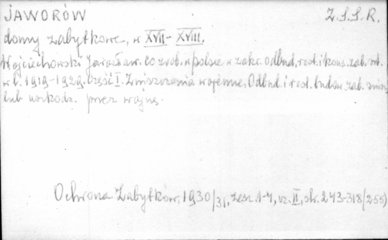 JAWORÓW Z.S.S.R.
domy zabytkowe, w XVII - XVIII.
Wojciechowski Jarosław. Co zrob. w Polsce w zakr. odbud, rest. i kons. zab. arch.
w l. 1919-1929. Część I. Zniszczenia wojenne. Odbud. i rest. budow. zab. znisz.
lub uszkodz. przez wojnę.
Ochrona Zabytków, 1930/31, zesz. 1-4, cz. II, str. 243-318/255)